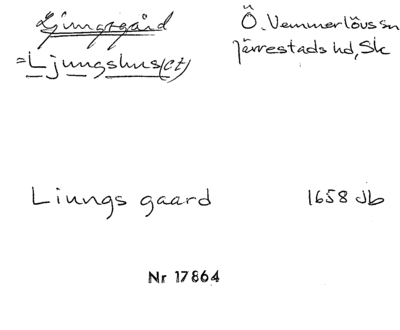 Ljungsgård
=Ljungshus(et)
Ö. Vemmerlövs sn
Järrestads hd, Sk
Liungs gaard
1658 Jb
Nr 17864